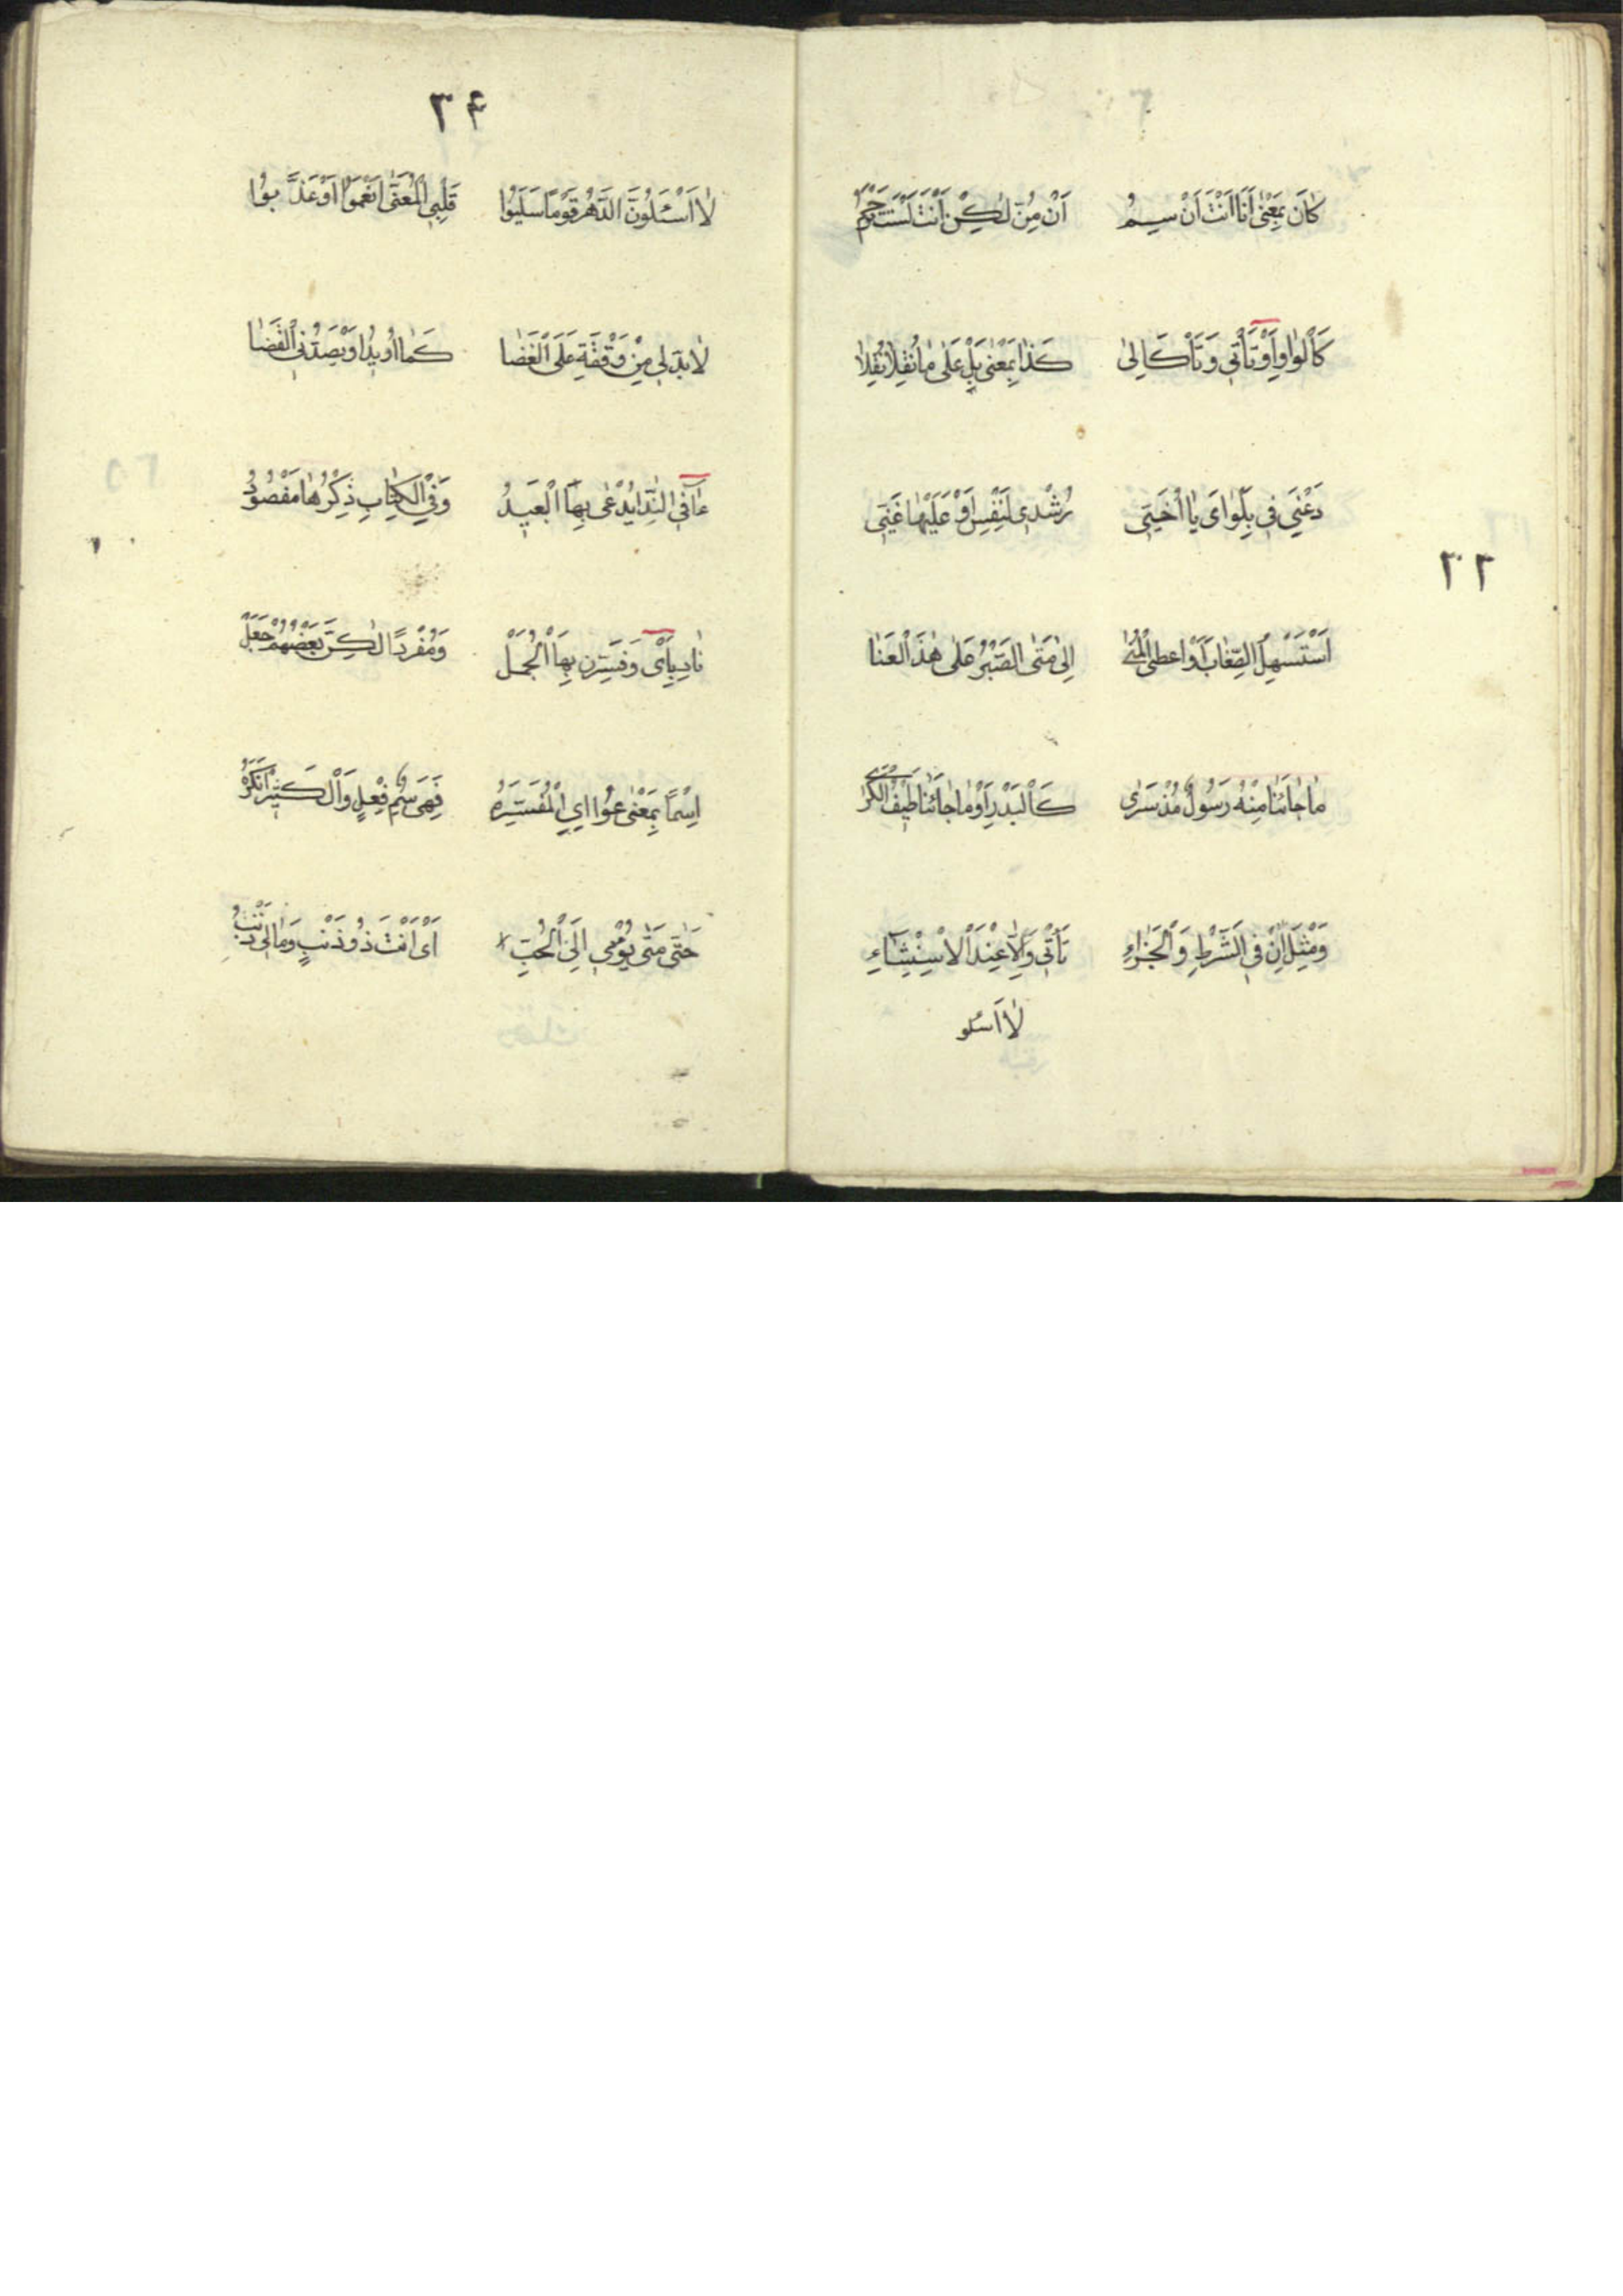 كَانَ بِمَعْنٰى اَنَا اَنْتَ اَنْ سِيمُ اَنْ مُنّ لٰكِنْ اَنْتَ لَسْتَ
كَالْوٰاوِ اَوْ تَأْتِى وَتَأْكَاِلىٰ كَذٰا بِمَعْنٰى بَلْ عَلٰى مٰا نُقِلاٰ نُقِلاٰ
دَعْنِى فِى بَلْوٰاىَ يٰا اُخَيَّتِى رُشْدِى لِنَفْسِى اَوْ عَلَيْهٰا غَيَّتِى
اَسْتَسْهِلُ الصِّعٰابَ اَوْ اعطى الْمُنٰى اِلىٰ مَتَى الصَّبْرُ عَلٰى هٰذَ الْعَنٰا
مٰا جٰائَنٰا مِنْهُ رَسُولٌ مُذْ سَرٰى كَالْبَدْرِ اَوْ مٰا جٰائَنٰا طَيْفُ الْكَرٰى
وَمِثْلَ اِنْ فِى الشَّرْطِ وَالْجَزٰاءِ تَأْتِى وَاِلاّٰ عِنْدَ الْاِسْتِثْنٰاءِ
لاٰ اَسْلو
٣٣
٣۴
لاٰ اَسْئَلُونَّ الدَّهْرَ قَوْمًا سَلَبُوا قَلْبِى الْمُعَنّٰى اَنْعَمُوا اَوْ عَذَّبوُا
لاٰ بدّ لِى مِنْ وَقْفَةٍ عَلَى الْغَضٰا كَمٰا اُرِيدُ اَوْ يَصُدَّنِى الْقَضٰا
ءٰا فِى النِّدٰا يُدْعٰى بِهَا الْبَعِيدُ وَفِى الْكِتٰابِ ذِكْرُهٰا مَفْصُودُ
نٰادِ بِاَىْ وَفَسِّرَنْ بِهَا الْجُمَلْ وَمُفْرَدًا لٰكِنَّ بَعْضُهُمْ جَعَلْ
اِسْمًا بِمَعْنٰى عُوا اىِ الْمُفَسِّرَهْ فَهِىَ سْمُ فِعْلٍ وَالْكَثِيرُ اَنْكَرَهْ
حَتّٰى مَتٰى يُؤْمى اِلَىَّ الْحُبِّ اَىْ اَنْتَ ذُو ذَنْبٍ وَمٰا لِى ذَنْبُ